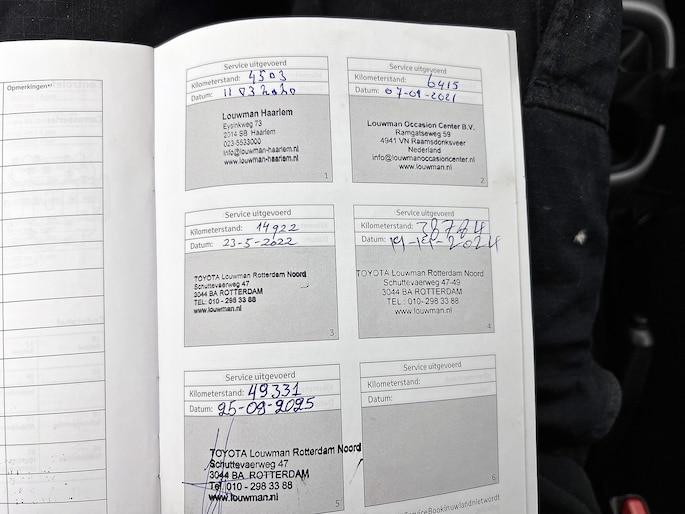 Opmerkingen*⁾
Service uitgevoerd
Kilometerstand: 4503
Datum: 11 03 2020
Louwman Haarlem
Eysinkweg 73
2014 SB Haarlem
023-5533000
info@louwman-haarlem.nl
www.louwman-haarlem.nl
1
Service uitgevoerd
Kilometerstand: 6415
Datum: 07-01-2021
Louwman Occasion Center B.V.
Ramgatseweg 59
4941 VN Raamsdonksveer
Nederland
info@louwmanoccasioncenter.nl
www.louwman.nl
2
Service uitgevoerd
Kilometerstand: 14922
Datum: 23-5-2022
TOYOTA Louwman Rotterdam Noord
Schuttevaerweg 47
3044 BA ROTTERDAM
TEL: 010 - 298 33 88
www.louwman.nl
3
Service uitgevoerd
Kilometerstand: 38784
Datum: 2024
TOYOTA Louwman Rotterdam Noord
Schuttevaerweg 47-49
3044 BA ROTTERDAM
TEL : 010 - 298 33 88
www.louwman.nl
4
Service uitgevoerd
Kilometerstand: 49331
Datum: 25-09-2025
TOYOTA Louwman Rotterdam Noord
Schuttevaerweg 47
3044 BA ROTTERDAM
Tel. 010 - 298 33 88
www.louwman.nl
5
Service uitgevoerd
Kilometerstand:
Datum:
6